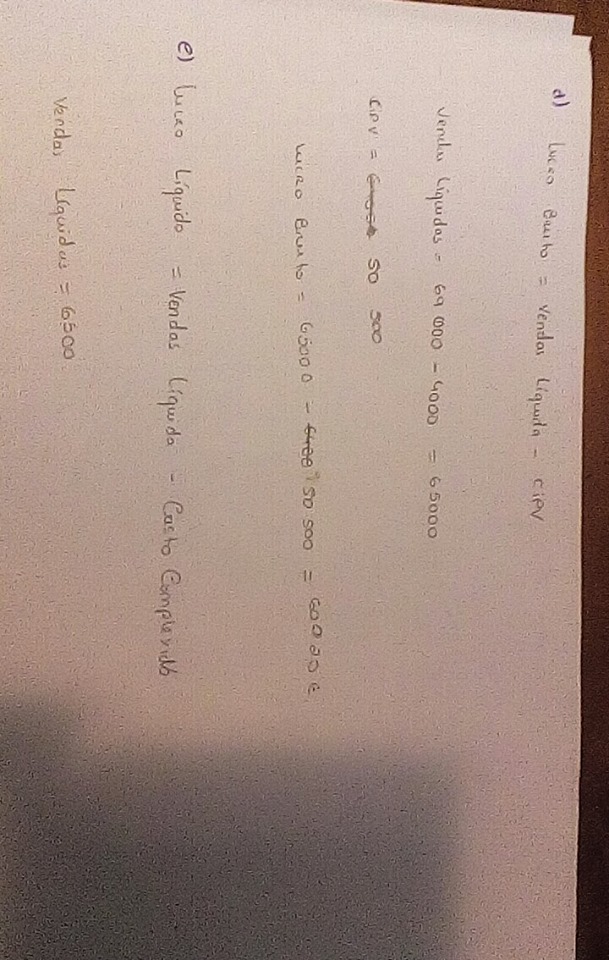 d) Lucro Bruto = Vendas Líquida - CIPV
Vendas Líquidas = 69 000 - 4000 = 65000
CIPV = 50 500
Lucro Bruto = 65000 - 50 500 =
e) Lucro Líquido = Vendas Líquida - Custo Complexivo
Vendas Líquidas = 6500